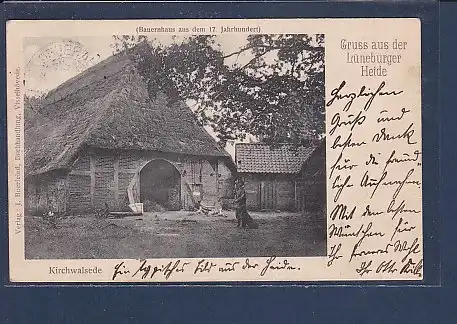 (Bauernhaus aus dem 17. Jahrhundert)
Gruss aus der
Lüneburger
Heide
Herzlichen
Gruß und
besten Dank
für die freund-
liche Aufnahme
Mit den besten
Wünschen für
Ihr ferneres Wohl
Ihr Otto
Verlag: J. Buchhandlung, Visselhövede.
Kirchwalsede
Ein typisches Bild aus der Heide.